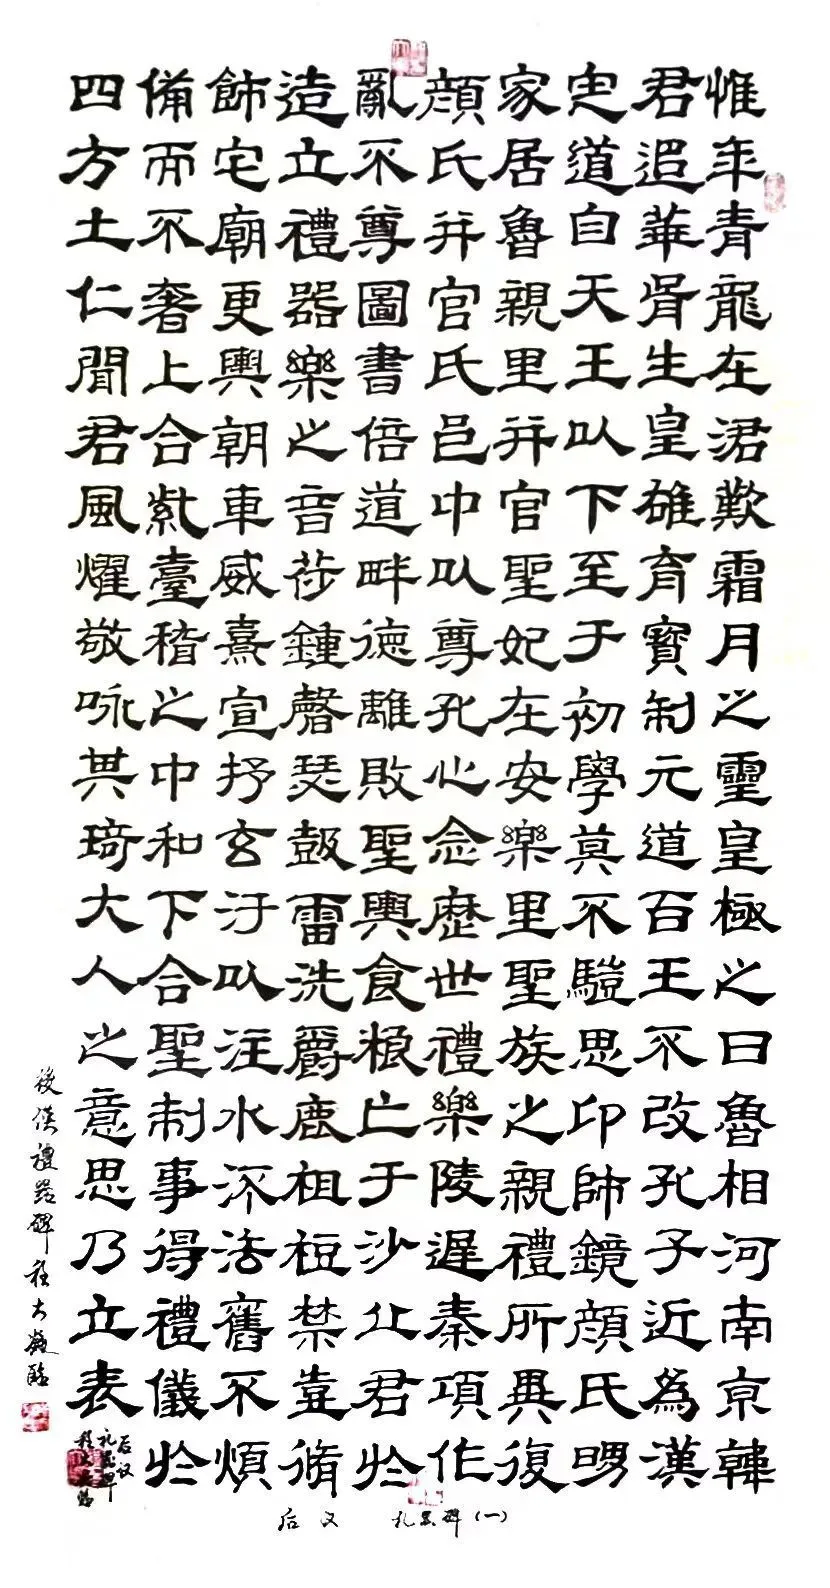 惟年青龍在涒歎霜月之靈皇極之日魯相河南京韓
君追華胥生皇雄育寶制元道百王不改孔子近為漢
定道自天王以下至于初學莫不驥思印師鏡顏氏舅
家居魯親里并官聖妃在安樂里聖族之親禮所異復
顏氏并官氏邑中以尊孔心念歷世禮樂陵遲秦項作
亂不尊圖書倍道畔德離敗聖輿食粮亡于沙丘君於
造立禮器樂之音苻鍾磬瑟鼓雷洗爵鹿柤梪禁壺脩
飾宅廟更輿朝車威熹宣抒玄汙以注水流法舊不煩
備而不奢上合紫臺稽之中和下合聖制事得禮儀於
四方土仁聞君風燿敬咏其琦大人之意思乃立表
後漢禮器碑程大臨
后汉
礼器碑
后汉 礼器碑（一）